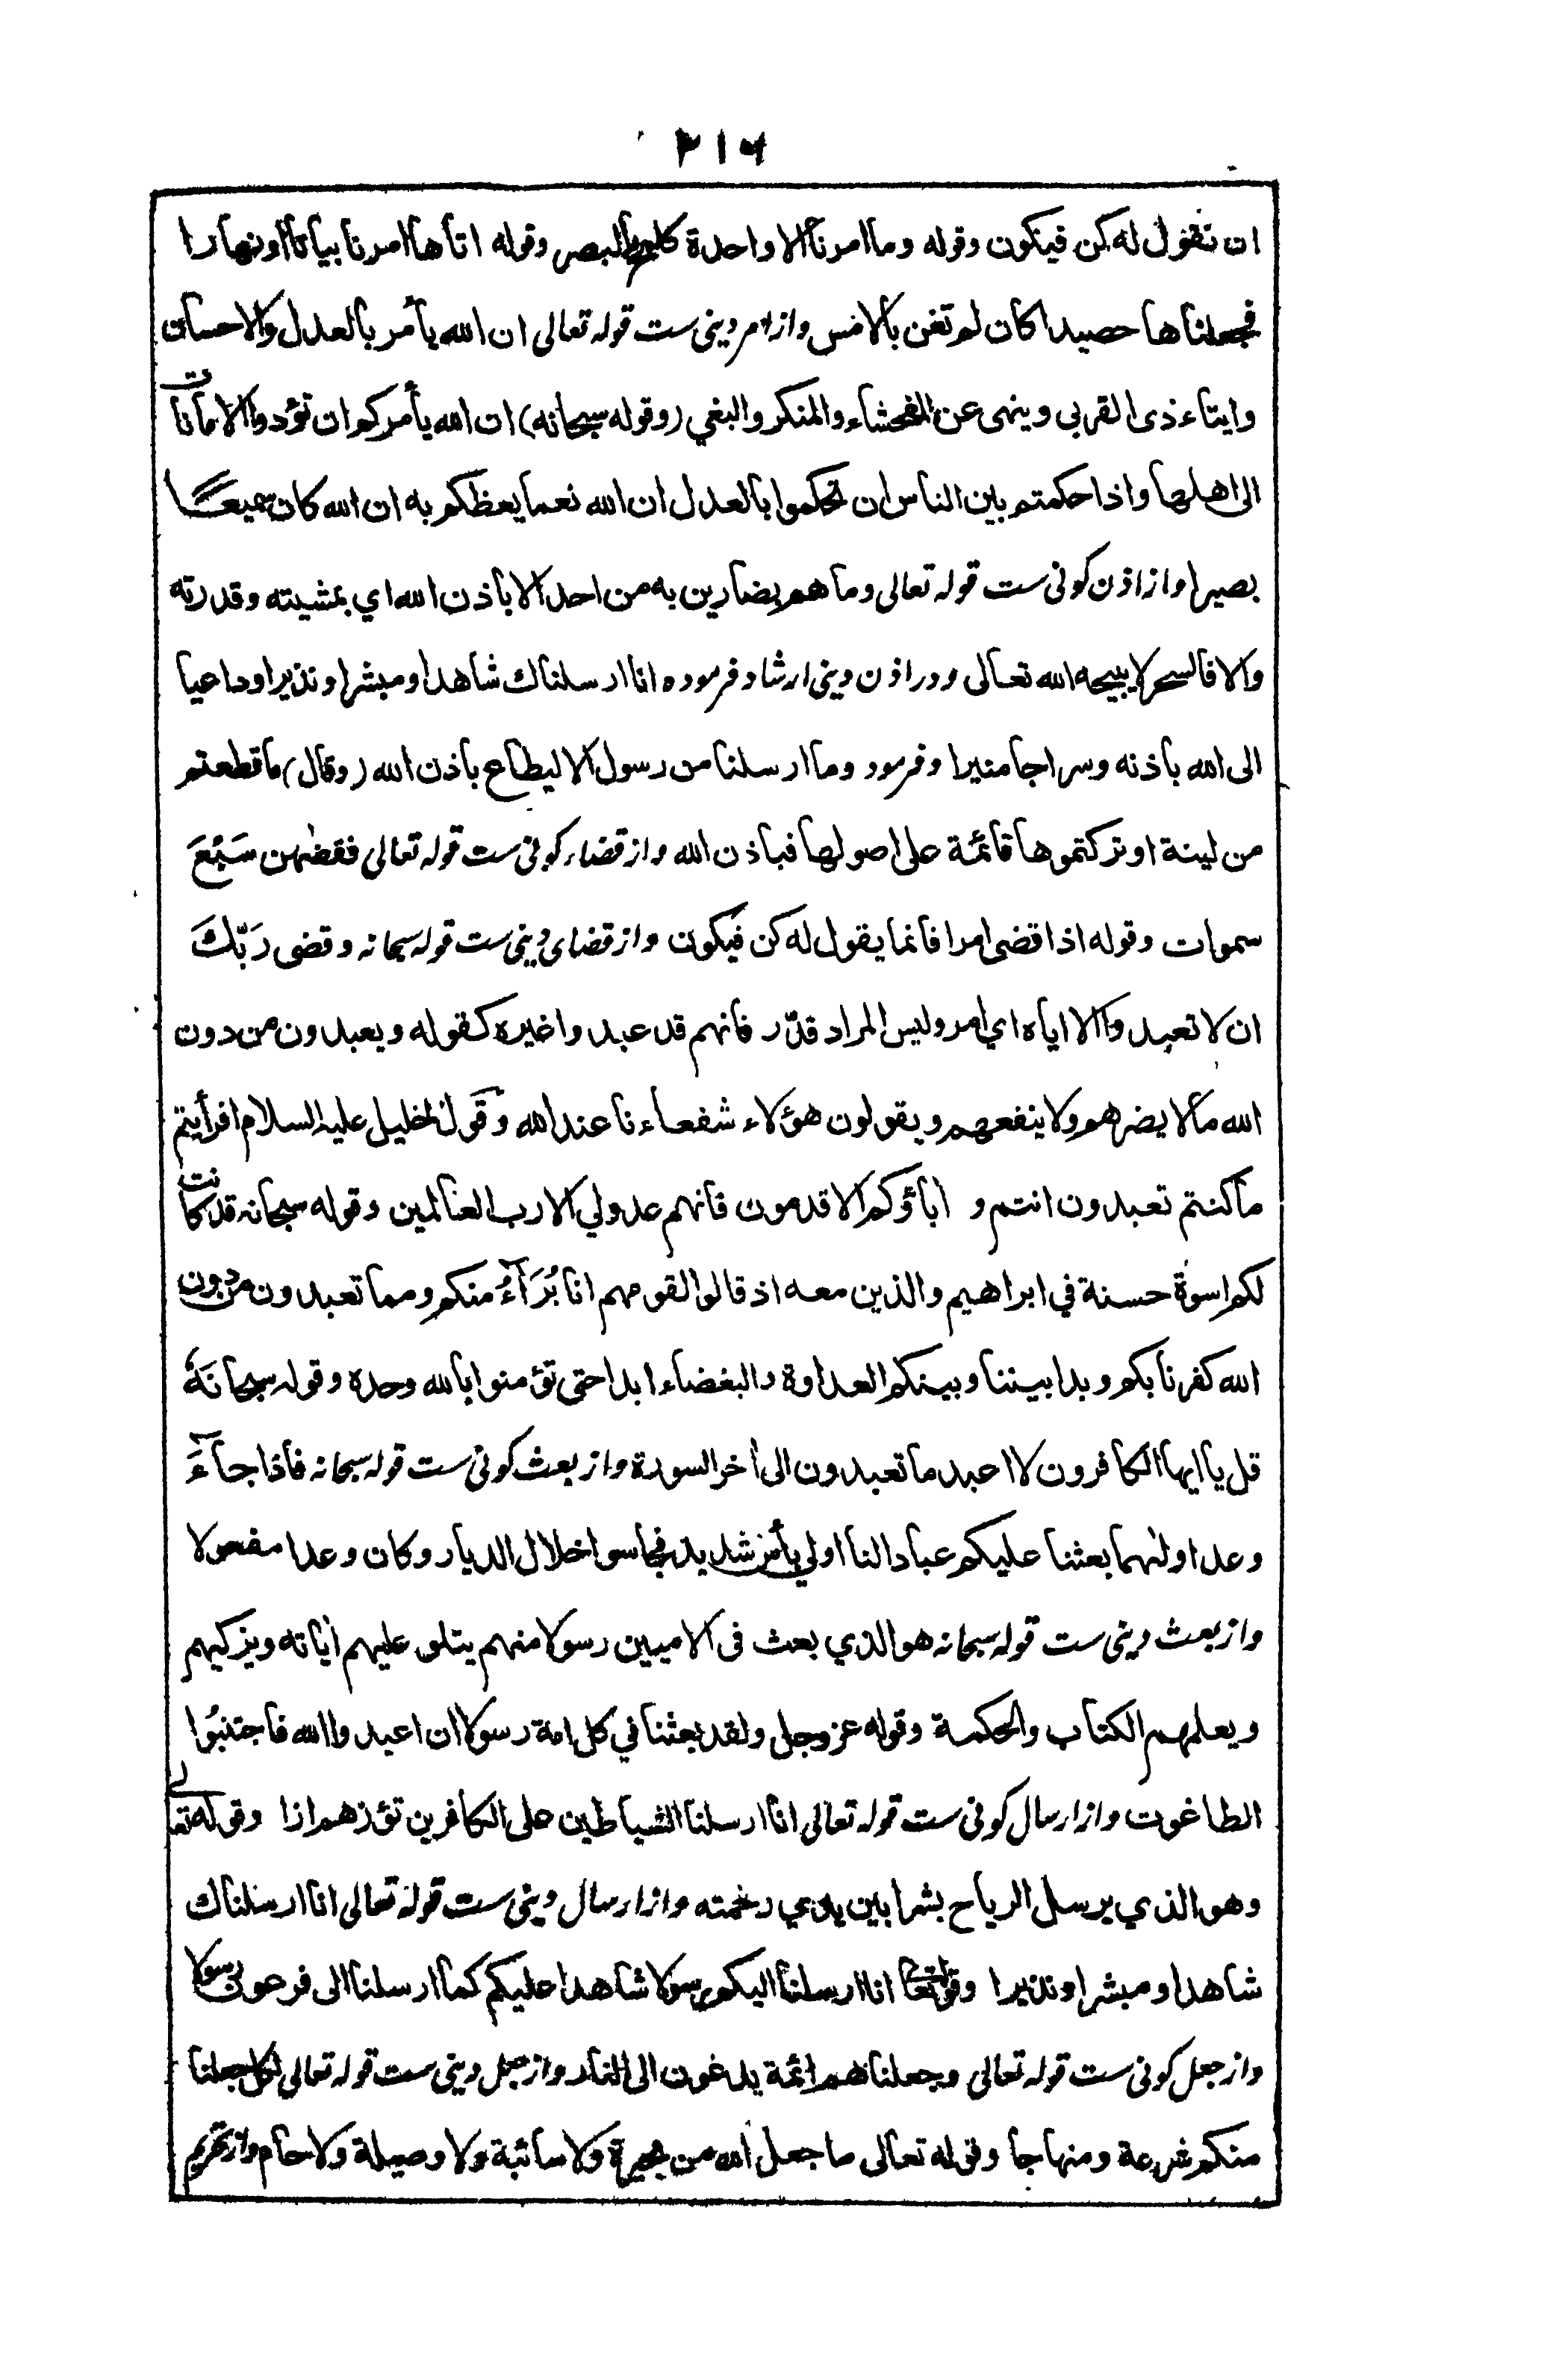 ٢١٦
ان نقول له كن فيكون وقوله وما امرنا الا واحدة كلمح بالبصر وقوله اتاها امرنا بياتا اونهارا
فجعلناها حصيدا كان لم تغن بالامس واز امر دینی ست قوله تعالی ان الله يأمر بالعدل والاحسان
وايتاء ذى القربى وينهى عن الفحشاء والمنكر والبغي (وقوله سبحانه) ان الله يأمركم ان تؤدوا الامانات
الى اهلها واذا حكمتم بين الناس ان تحكموا بالعدل ان الله نعما يعظكم به ان الله كان سميعا
بصيرا واز اذن کونی ست قوله تعالی وما هم بضارين به من احد الا باذن الله اي بمشيته وقدرته
والا فالسحر لا يبيحه الله تعالى ودر اذن دینی ارشاد فرموده انا ارسلناك شاهدا ومبشرا ونذيرا وداعيا
الى الله باذنه وسراجا منيرا وفرمود وما ارسلنا من رسول الا ليطاع باذن الله (وقال) ما قطعتم
من لينة او تركتموها قائمة على اصولها فباذن الله واز قضاء کونی ست قوله تعالی فقضٰهن سَبْعَ
سموات وقوله اذا قضى امرا فانما يقول له كن فيكون واز قضای دینی ست قوله سبحانه وقضى رَبّكَ
ان لا تعبدوا الا اياه اي امر وليس المراد قدّر فانهم قد عبدوا غيره كقوله ويعبدون من دون
الله ما لا يضرهم ولا ينفعهم ويقولون هؤلاء شفعاءنا عند الله وقول الخليل عليه السلام افرأيتم
ما كنتم تعبدون انتم و اباؤكم الاقدمون فانهم عدولي الا رب العالمين وقوله سبحانه قد كانت
لكم اسوة حسنة في ابراهيم والذين معه اذ قالوا لقومهم انا بُرَآءُ منكم ومما تعبدون من دون
الله كفرنا بكم وبدا بيننا وبينكم العداوة والبغضاء ابدا حتى تؤمنوا بالله وحده وقوله سبحانَهٗ
قل يا ايها الكافرون لا اعبد ما تعبدون الى اخر السورة واز بعث کونی ست قوله سبحانه فاذا جآءَ
وعد اولٰهما بعثنا عليكم عبادا لنا اولي بأس شديد فجاسوا خلال الديار وكان وعدا مفعولا
واز بعث دینی ست قوله سبحانه هو الذي بعث فى الاميين رسولا منهم يتلو عليهم اياته ويزكيهم
ويعلمهم الكتاب والحكمة وقوله عز وجل ولقد بعثنا في كل امة رسولا ان اعبدوا الله فاجتنبُوا
الطاغوت واز ارسال کونی ست قوله تعالی انا ارسلنا الشياطين على الكافرين تؤزهم ازا وقوله تعالی
وهو الذي يرسل الرياح بشرا بين يدي رحمته واز ارسال دینی ست قوله تعالی انا ارسلناك
شاهدا ومبشرا ونذيرا وقوله تعا انا ارسلنا اليكم رسولا شاهدا عليكم كما ارسلنا الى فرعون رسولا
واز جعل کونی ست قوله تعالی وجعلناهم ائمة يدعون الى النار واز جعل دینی ست قوله تعالی لكل جعلنا
منكم شرعة ومنهاجا وقوله تعالى ما جعل الله من بحيرة ولا سائبة ولا وصيلة ولا حام واز تحریم